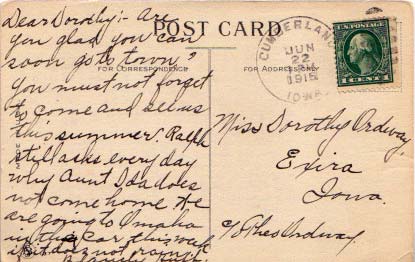 Dear Dorothy:- Are
you glad you can
soon go to town?
You must not forget
to come and see us
this summer. Ralph
still asks every day
why Aunt Ida does
not come home. We
are going to Omaha
in the car this week
if it does not rain.
POST CARD
FOR CORRESPONDENCE
FOR ADDRESS
CUMBERLAND
JUN
22
1915
IOWA
1 CENT 1
Miss Dorothy Ordway,
Exira
Iowa.
c/o Theo Ordway.